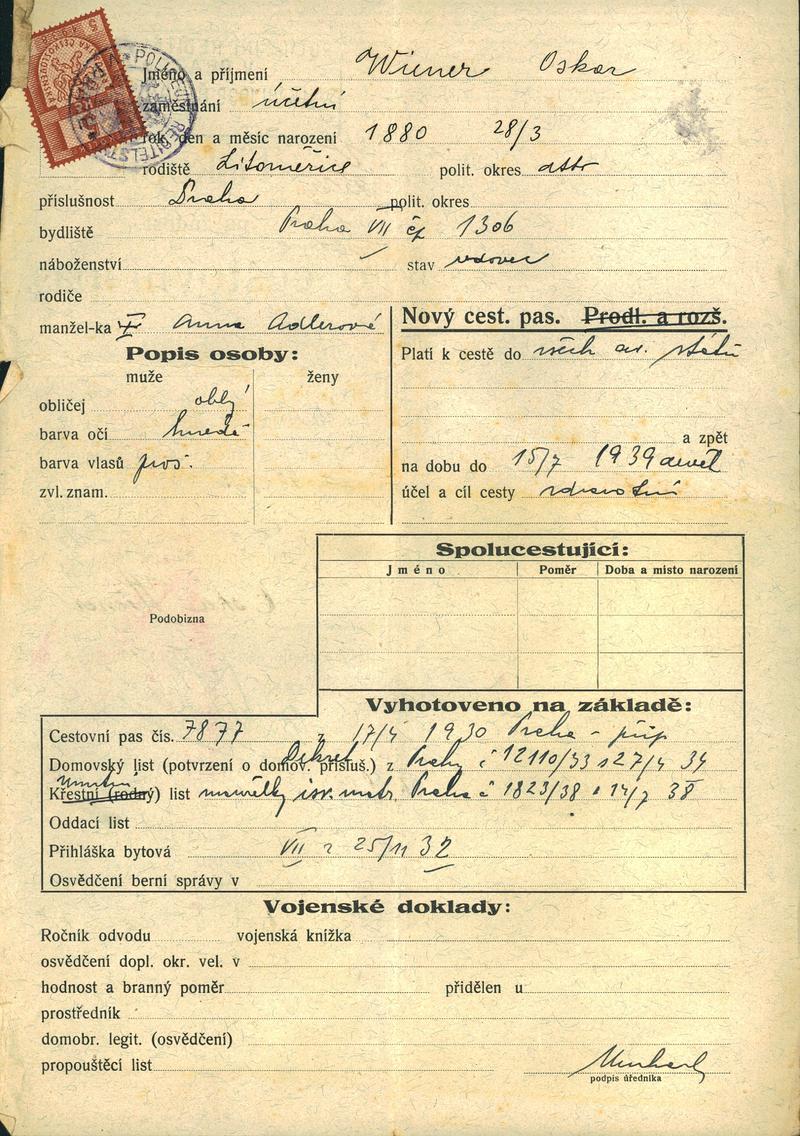 Jméno a příjmení Wiener Oskar
zaměstnání účetní
rok den a měsíc narození 1880 28/3
rodiště Litoměřice polit. okres dtto
příslušnost Praha polit. okres
bydliště Praha VII čp 1306
náboženství stav vdovec
rodiče
manžel-ka Anna Adlerová
Nový cest. pas. Prodl. a rozš.
Popis osoby:
muže ženy
Platí k cestě do všech ev. států
obličej oblý
barva očí hnědé
a zpět
barva vlasů pros.
na dobu do 15/7 1939
zvl. znam.
účel a cíl cesty zdravotní
Spolucestující:
Jméno Poměr Doba a místo narození
Podobizna
Vyhotoveno na základě:
Cestovní pas čís. 7877 z 17/4 1930 Praha - přip
Dekret
Domovský list (potvrzení o domov. přísluš.) z Prahy č 12110/33 z 27/4 34
Úmrtní
Křestní (rodný) list manželky isr. matr. Praha č 1823/38 z 14/7 38
Oddací list
Přihláška bytová VII z 25/11 32
Osvědčení berní správy v
Vojenské doklady:
Ročník odvodu vojenská knížka
osvědčení dopl. okr. vel. v
hodnost a branný poměr přidělen u
prostředník
domobr. legit. (osvědčení)
propouštěcí list
podpis úředníka